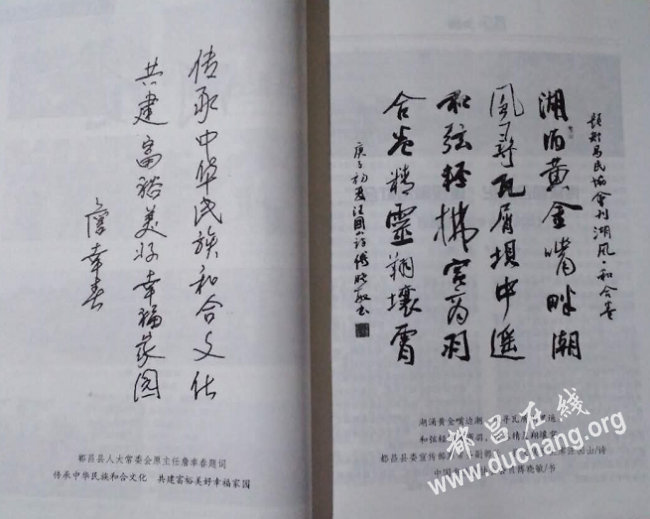 传承中华民族和合文化
共建富裕美好幸福家园
詹幸春
都昌县人大常委会原主任詹幸春题词
传承中华民族和合文化 共建富裕美好幸福家园
民协会刊湖风·和合卷
湖涌黄金嘴畔潮
风寻瓦屑坝中遥
和弦轻拂宫商羽
合卷精灵翔壤霄
庚子初夏汪国山诗傅晓敏书
湖涌黄金嘴边潮,寻瓦
和弦轻精灵翔壤霄
都昌县委宣传部副汪国山/诗
中国傅晓敏/书
都昌在线
www.duchang.org